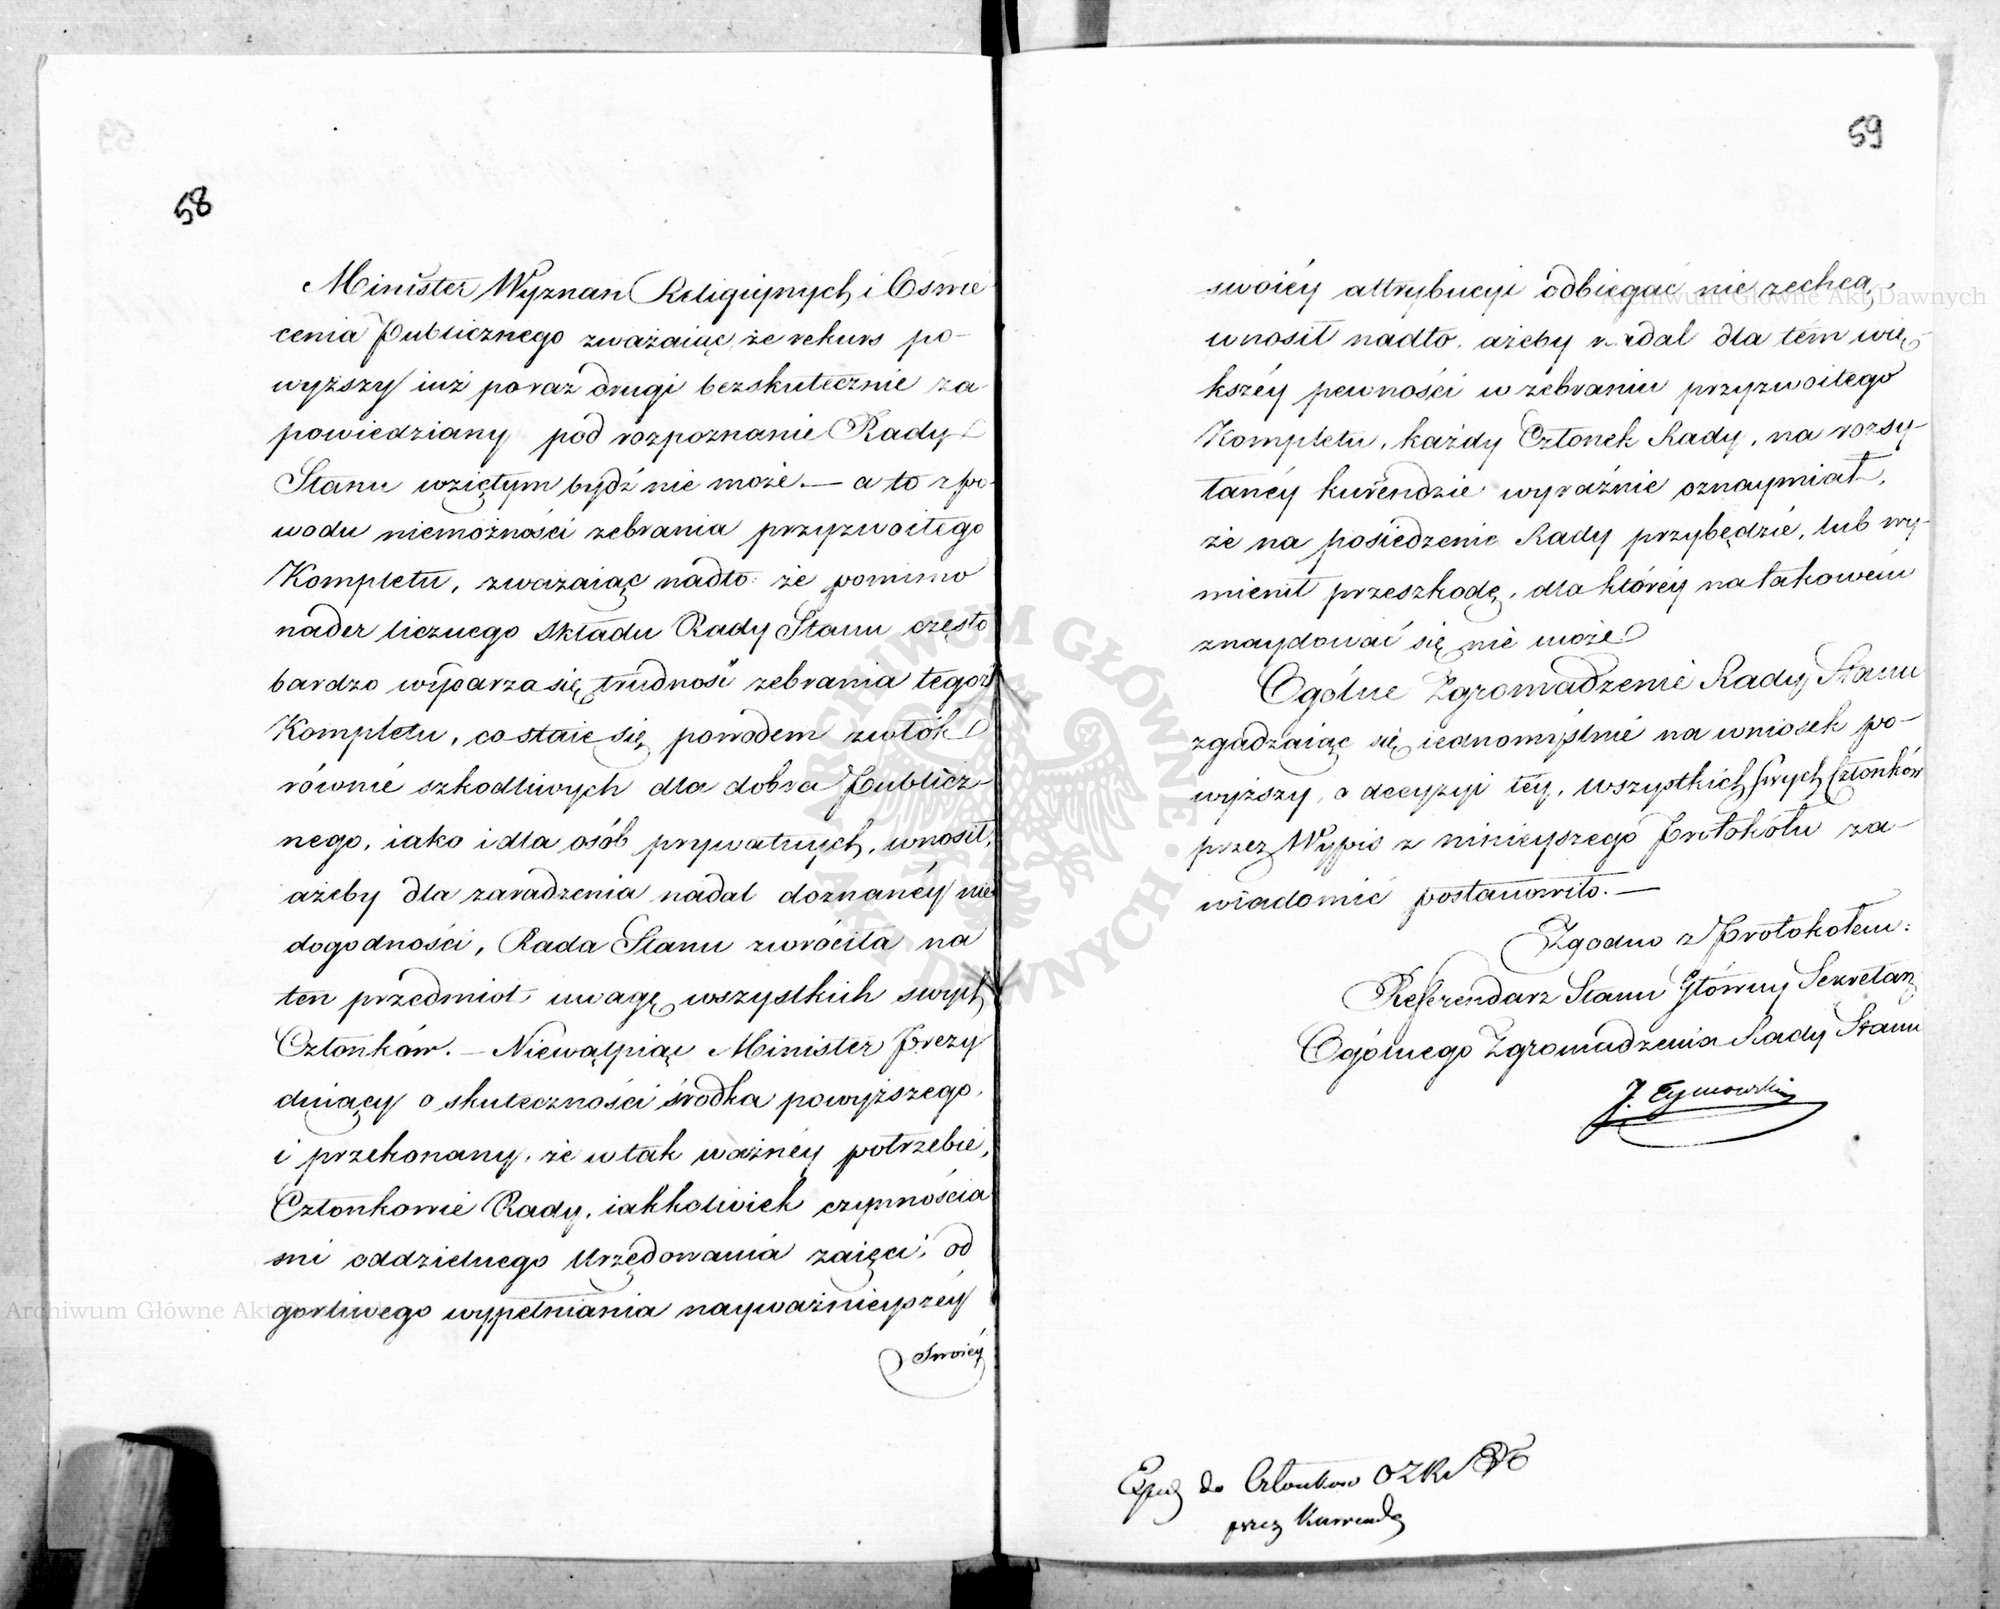 58
Minister Wyznań Religiynych i Oświe
cenia Publicznego zważaiąc że rekurs po-
wyższy iuż poraz drugi bezskutecznie za
powiedziany pod rozpoznanie Rady
Stanu wziętym bydź nie może. — a to z po-
wodu niemożności zebrania przyzwoitego
Kompletu, zważaiąc nadto że pomimo
nader licznego składu Rady Stanu często
bardzo wydarza się trudność zebrania tegoż
Kompletu, co staie się powodem zwłok
równie szkodliwych dla dobra Publicz-
nego, iako i dla osób prywatnych, wnosił,
ażeby dla zaradzenia nadal doznanéy nie
dogodności, Rada Stanu zwróciła na
ten przedmiot uwagę wszystkich swych
Członków. — Niewątpiąc Minister Prezy
duiący o skuteczności środka powyższego,
i przekonany, że w tak ważnéy potrzebie,
Członkowie Rady, iakkolwiek czynnościa
mi oddzielnego Urzędowania zaięci, od
gorliwego wypełniania nayważnieyszéy
swoiéy
59
swoiéy attrybucyi odbiegać nie zechcą,
wnosił nadto, ażeby nadal dla tém wię-
kszéy pewności w zebraniu przyzwoitego
Kompletu, każdy Członek Rady, na rozsy-
łanéy kurendzie wyraźnie oznaymiał,
że na posiedzenie Rady przybędzie, lub wy-
mienił przeszkodę, dla któréy na takowém
znaydować się nie może
Ogólne Zgromadzenie Rady Stanu
zgadzaiąc się iednomyślnie na wniosek po-
wyższy, o decyzyi téy, wszystkich swych Członków
przez Wypis z ninieyszego Protokółu za-
wiadomić postanowiło. —
Zgodno z Protokółem:
Referendarz Stanu Główny Sekretarz
Ogólnego Zgromadzenia Rady Stanu
J. Tymowski
do Członków OZRS
przez Kurrendę
Archiwum Główne Akt Dawnych
Archiwum Główne Akt
ARCHIWUM GŁÓWNE AKT DAWNYCH